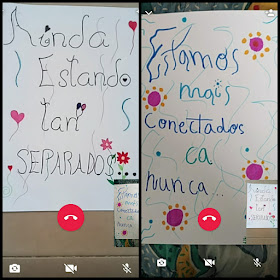 Aínda
Estando
tan
SEPARADOS
Estamos
mais
conectados
ca
nunca...